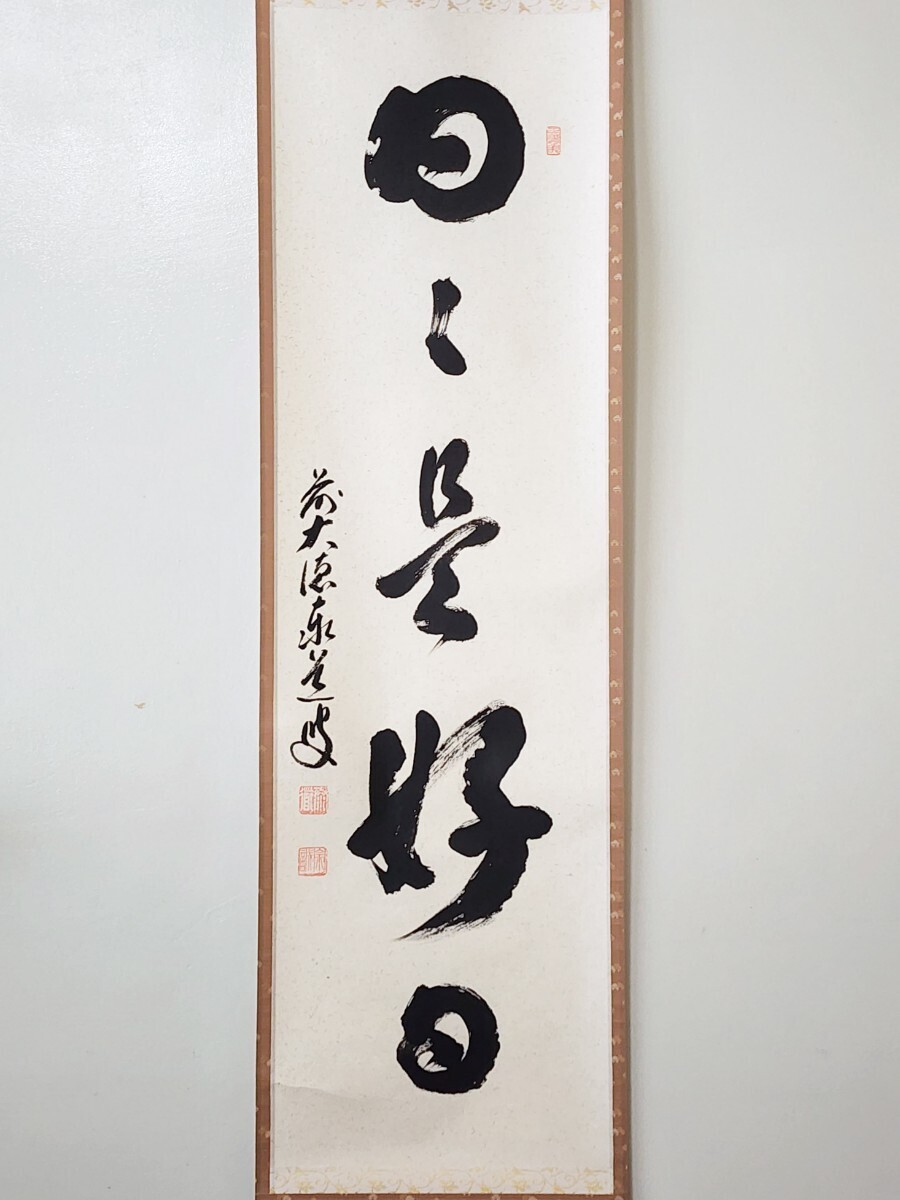 日々是好日
前大徳泰道叟